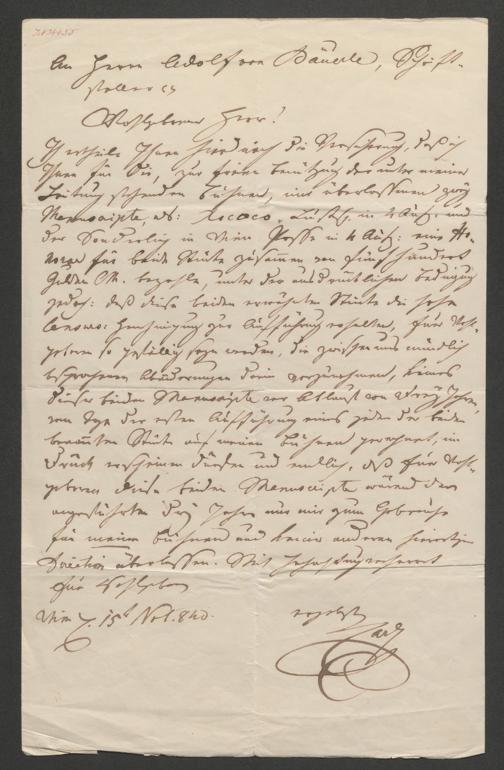 An Herrn Adolf von Bäuerle, Schrift-
steller
Wohlgeborner Herr!
Ich ertheile Ihnen hierdurch die Versicherung, daß ich
Ihnen für die, zur freien Benützung der unter meiner
Leitung stehenden Bühnen, mir überlassenen zwey
Manuscripte, als: Rococo, Lustsp. in 2 Aufz. und
der Sonderling in Wien Posse in 4 Aufz. eine Ho-
norar für beide Stücke zusammen von fünfhundert
Gulden CM. bezahle, unter der ausdrücklichen Bedingung
jedoch: daß diese beiden erwähnten Stücke die hohe
Censurs: Genehmigung zur Aufführung erhalten, Euer Wohl-
geboren so gefällig seyn werden, die zwischen uns mündlich
besprochenen Abänderungen darin vorzunehmen, keines
dieser beiden Manuscripte vor Ablauf von drey Jahren,
vom Tage der ersten Aufführung eines jeden der beiden
benannten Stücke auf meinen Bühnen gerechnet, im
Druck erscheinen dürfen und endlich, daß Euer Wohl-
geboren diese beiden Manuscripte während der
angeführten drey Jahre nur mir zum Gebrauche
für meine Bühnen und keiner anderen hiesigen
Direction überlassen. Mit Hochachtung verharret
Euer Wohlgeboren
Wien d. 15t Nov. 840.
ergebenster
Carl